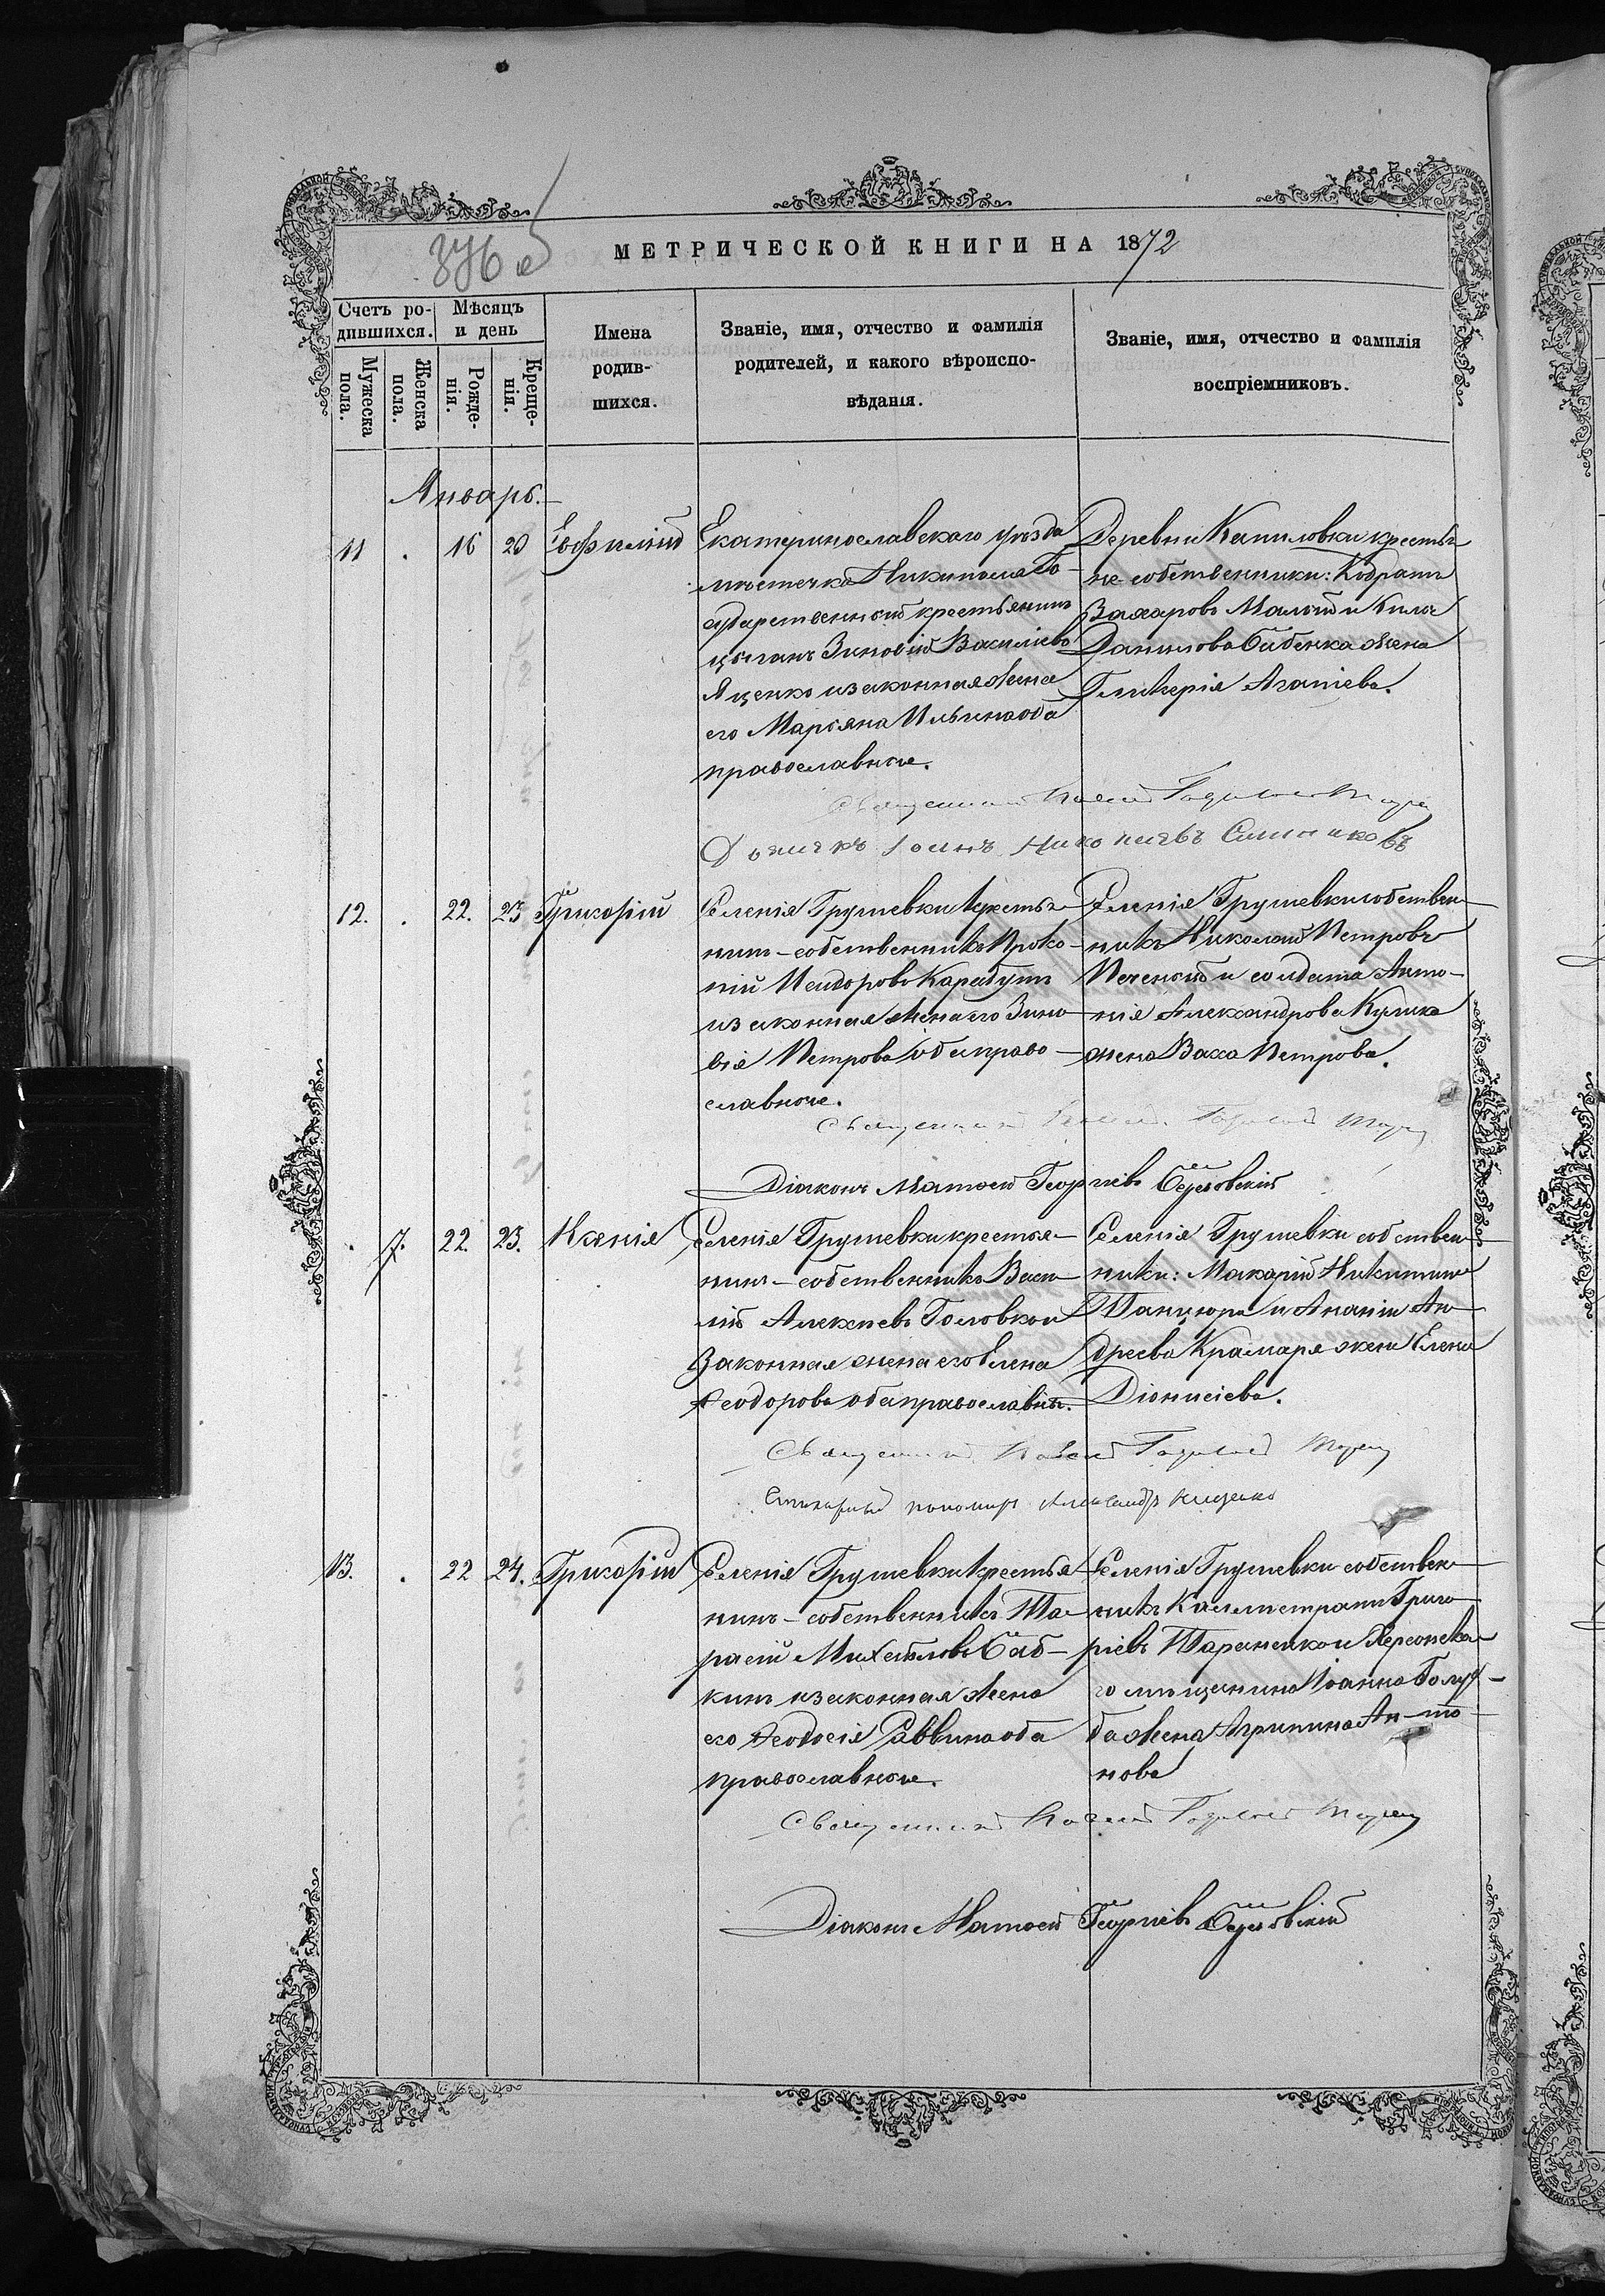 МЕТРИЧЕСКОЙ КНИГИ НА 1872
Счетъ ро-
дившихся.
Мѣсяцъ
и день
Мужеска
пола.
Женска
пола.
Рожде-
нія.
Креще-
нія.
Имена
родив-
шихся.
Званіе, имя, отчество и фамилія
родителей, и какого вѣроиспо-
вѣданія.
Званіе, имя, отчество и фамилія
воспріемниковъ.
Январь.
11 . 16 20 Евфимій
Екатеринославскаго уѣзда
мѣстечка Никополя Го-
сударственный крестьянинъ
цыганъ Зиновій Василіевъ
Яценко и законная жена
его Маріяна Ильина оба
православные.
Деревни крестья-
не собственники: Кодратъ
Захаровъ Малый и
Данилова Бабенка жена
Гликерія Агапіева.
Священникъ Павелъ
Іоаннъ
12. . 22. 23 Григорій
Селенія Грушевки крестья-
нинъ-собственникъ Проко-
пій Исидоровъ Карабутъ
и законная жена его Зино-
вія Петрова оба право-
славные.
Селенія Грушевки собствен-
никъ Николай Петровъ
Печеный и солдата Анто-
нія Александрова Кулика
жена Васса Петрова.
Священникъ Павелъ
Діаконъ Матѳей Георгіевъ
. 7. 22. 23. Ксенія
Селенія Грушевки крестья-
нинъ-собственникъ Васи-
лій Алексѣевъ Головко и
Законная жена его Елена
Ѳеодорова оба православны.
Селенія Грушевки собствен-
ники: Макарій Никитинъ
Танцюра и Ананіи Ан-
дреева Крамаря жена Елена
Діонисіева.
Священникъ Павелъ
пономарь Александръ
13. . 22 24. Григорій
Селенія Грушевки крестья-
нинъ-собственникъ Та-
расій Михайловъ Баб-
кинъ и законная жена
его Ѳеодосія Саввина оба
православные.
Селенія Грушевки собствен-
никъ Каллистратъ Григо-
ріевъ Тараненко и Херсонска-
го мѣщанина Іоанна Голу-
ба жена Агрипина Анто-
нова
Священникъ Павелъ
Діаконъ Матѳей Георгіевъ